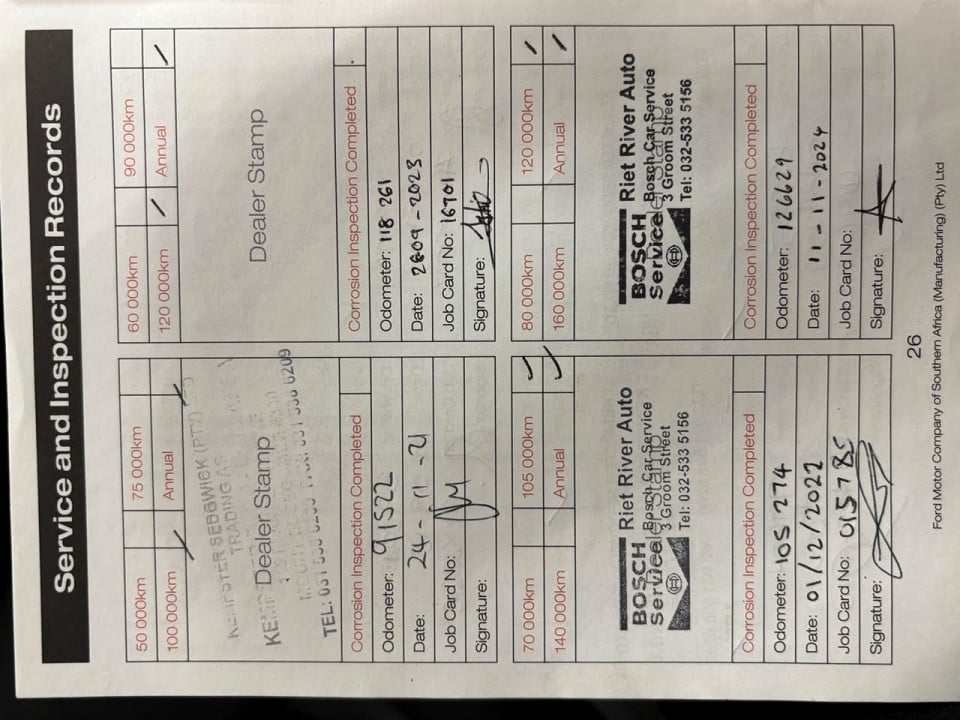 Service and Inspection Records
50 000km 75 000km
100 000km Annual
KEMPSTER SEDGWICK (PTY)
TRADING AS
Dealer Stamp
TEL: 031
6209
Corrosion Inspection Completed
Odometer: 91522
Date: 24-11-21
Job Card No:
Signature:
60 000km 90 000km
120 000km Annual
Dealer Stamp
Corrosion Inspection Completed
Odometer: 118 261
Date: 28-09-2023
Job Card No: 16701
Signature:
70 000km 105 000km
140 000km Annual
BOSCH Riet River Auto
Service Bosch Car Service
3 Groom Street
Tel: 032-533 5156
Corrosion Inspection Completed
Odometer: 105 274
Date: 01/12/2022
Job Card No: 015785
Signature:
80 000km 120 000km
160 000km Annual
BOSCH Riet River Auto
Service Bosch Car Service
3 Groom Street
Tel: 032-533 5156
Corrosion Inspection Completed
Odometer: 126629
Date: 11-11-2024
Job Card No:
Signature:
26
Ford Motor Company of Southern Africa (Manufacturing) (Pty) Ltd